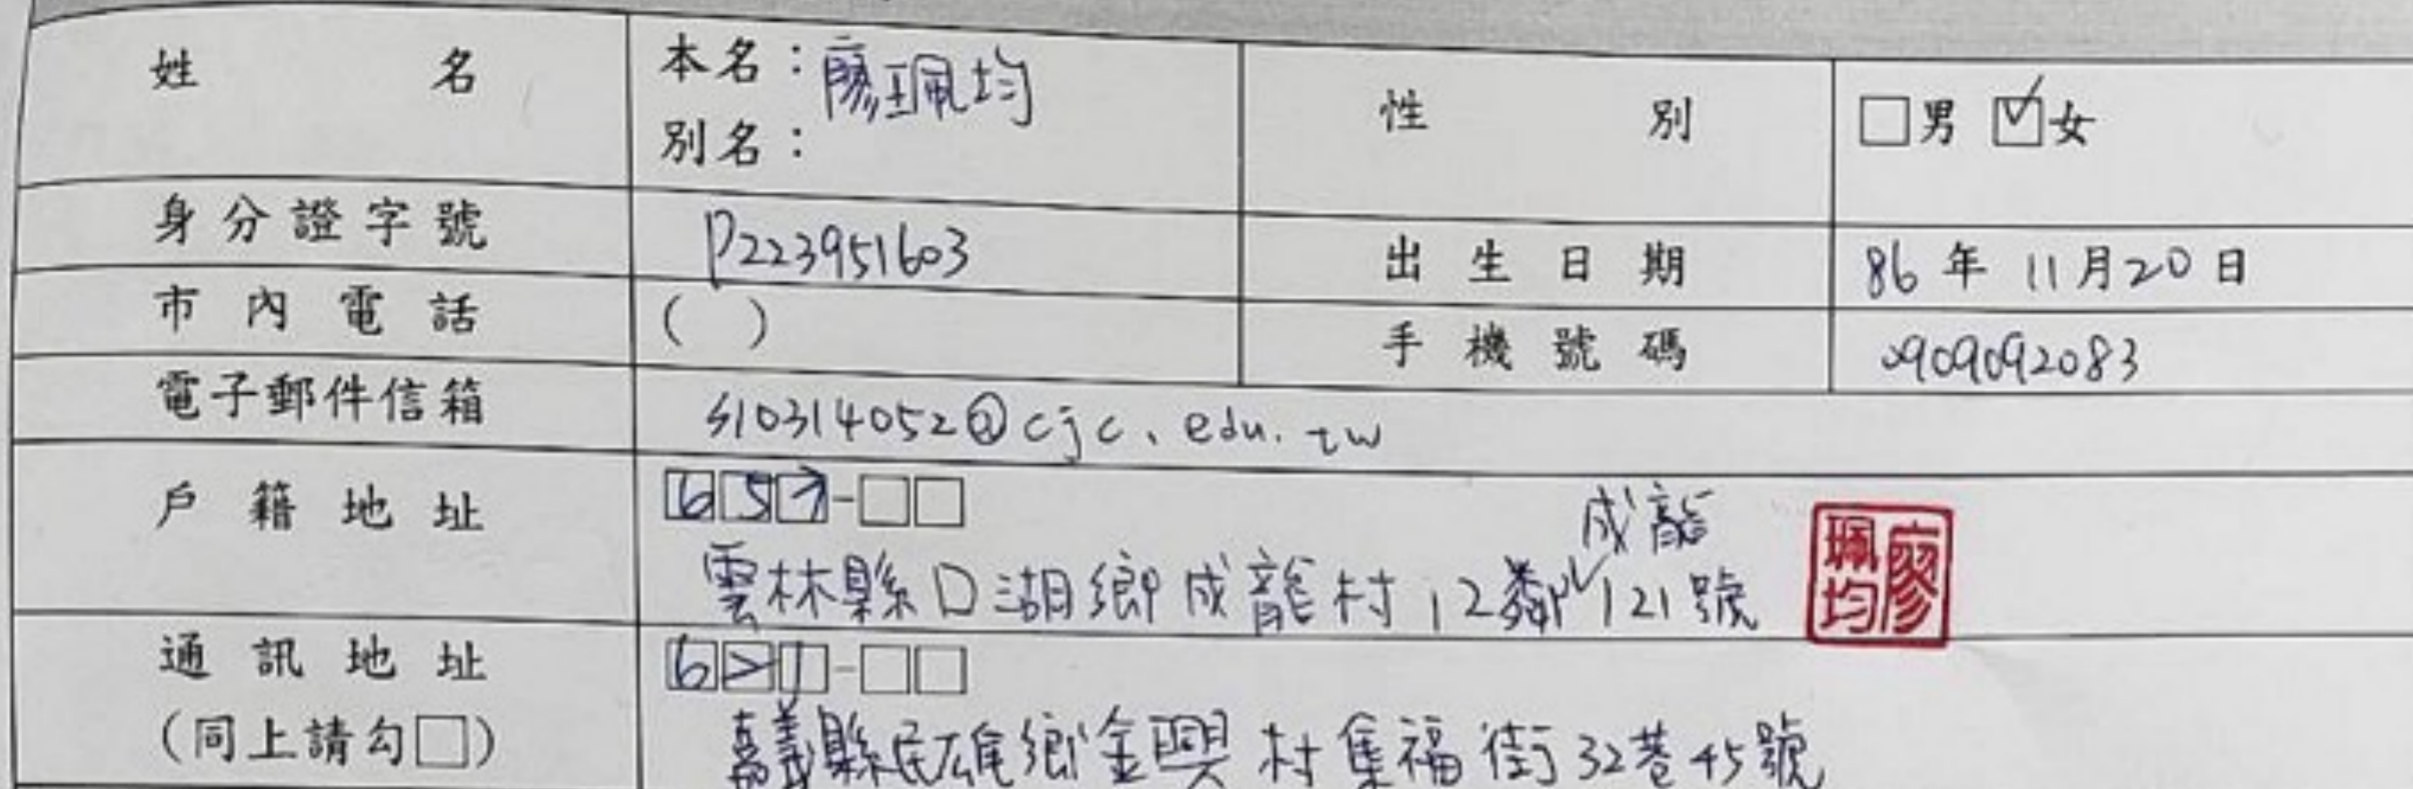 姓名 本名：廖珮均 性別 □男 ☑女
別名：
身分證字號 P223951603 出生日期 86年11月20日
市內電話 ( ) 手機號碼 0909092083
電子郵件信箱 s10314052@cjc.edu.tw
戶籍地址 657-□□
成龍
雲林縣口湖鄉成龍村12鄰✓121號
廖珮均
通訊地址 621-□□
(同上請勾□) 嘉義縣民雄鄉金興村集福街32巷45號